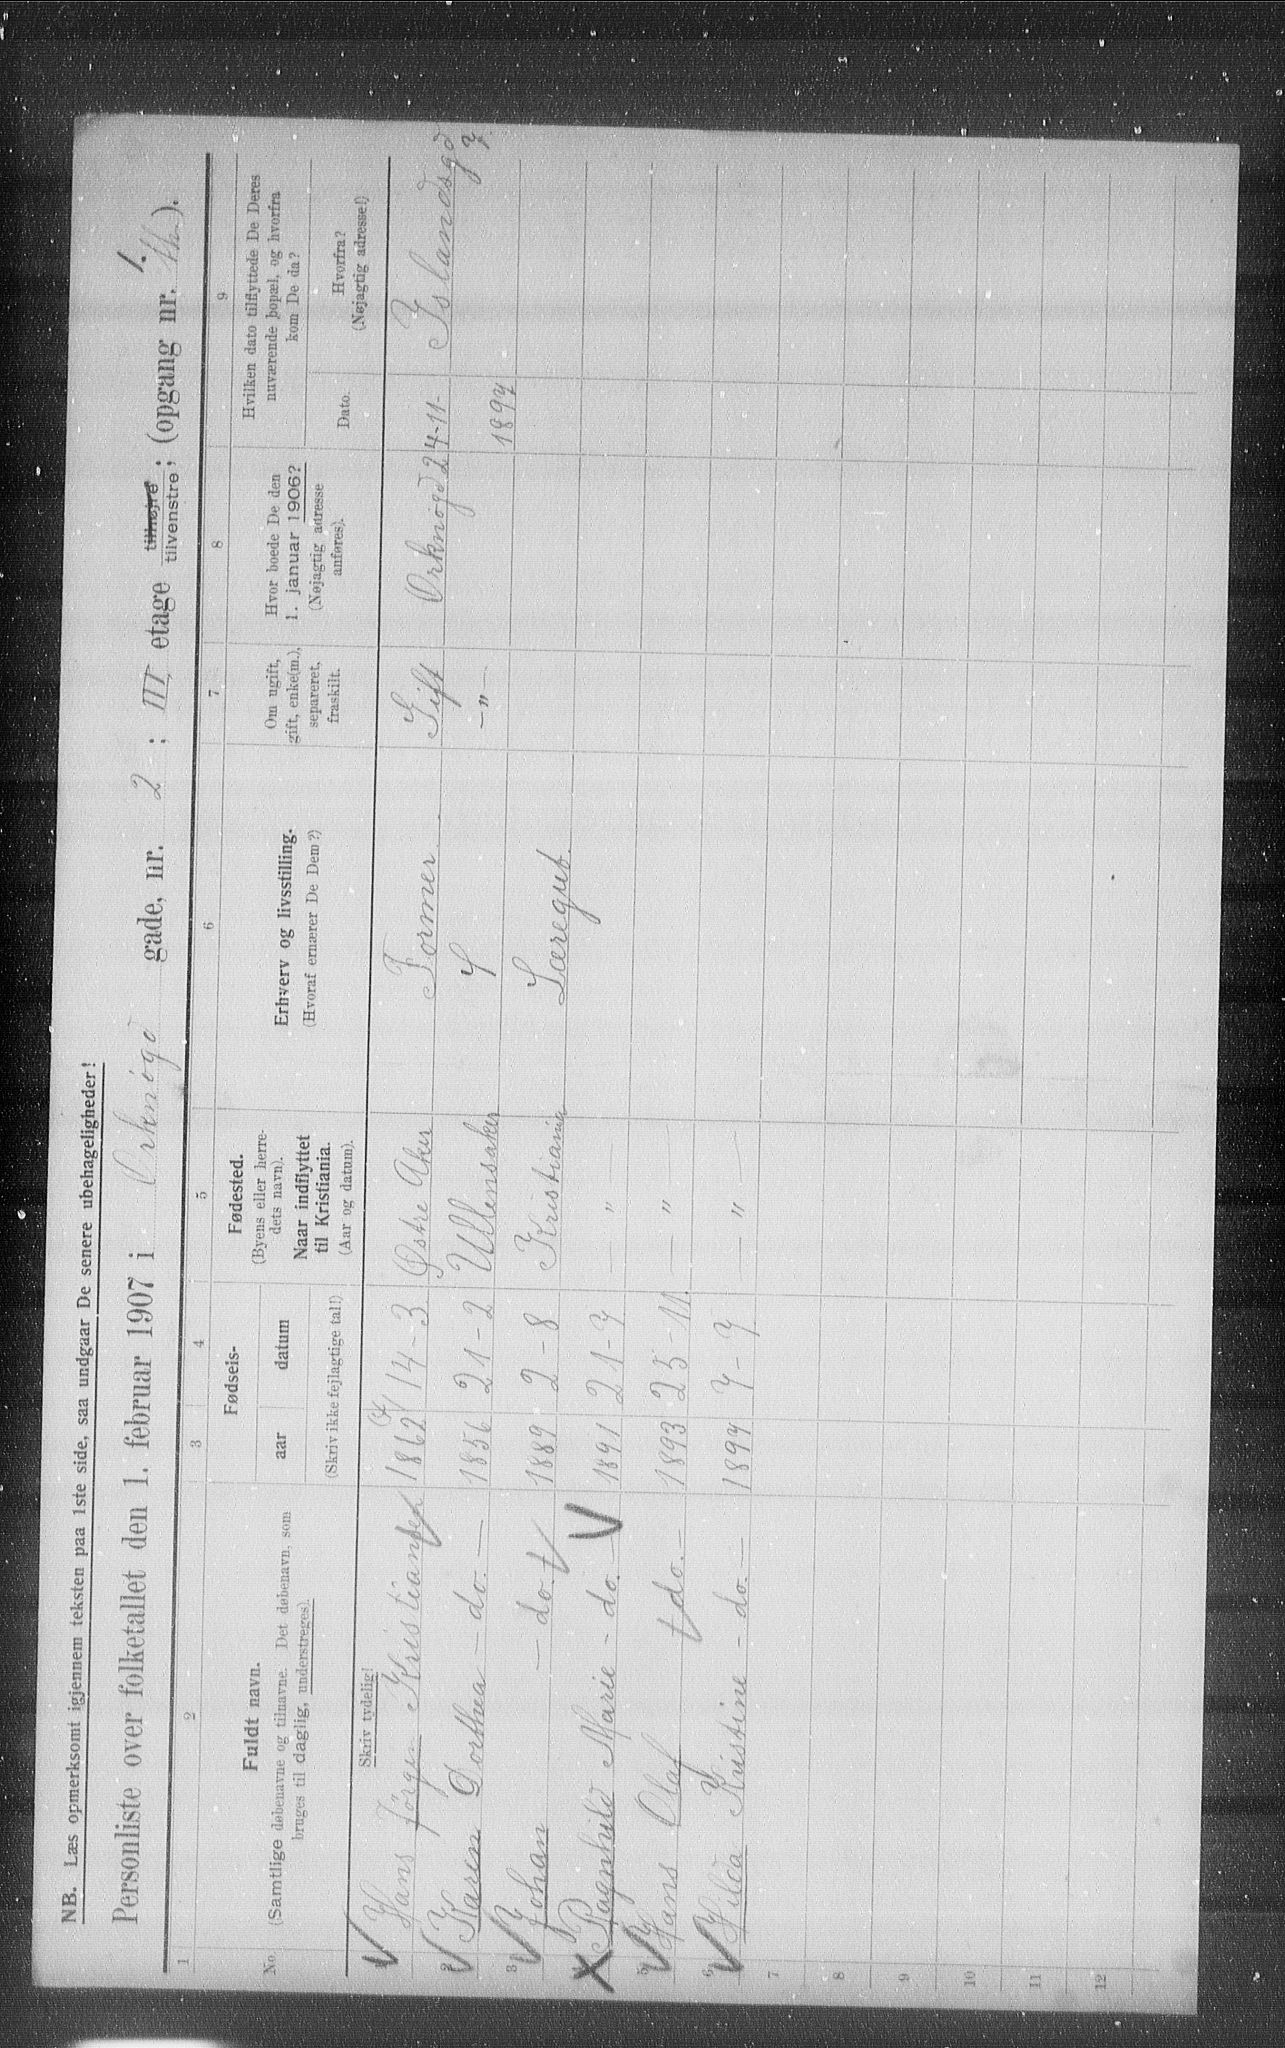 NB. Læs opmerksomt igjennem teksten paa 1ste side, saa undgaar De senere ubehageligheder!
Personliste over folketallet den 1. februar 1907 i Orknögd gade, nr. 2 ; III etage tilhøjre tilvenstre; (opgang nr. 1.).
1 2 3 4 5 6 7 8 9
No. Fuldt navn. (Samtlige døbenavne og tilnavne. Det døbenavn, som bruges til daglig, understreges).
Fødsels-
aar datum
(Skriv ikke fejlagtige tal!)
Fødested. (Byens eller herredets navn). Naar indflyttet til Kristiania. (Aar og datum).
Erhverv og livsstilling. (Hvoraf ernærer De Dem?)
Om ugift, gift, enke(m.), separeret, fraskilt.
Hvor boede De den 1. januar 1906? (Nøjagtig adresse anføres).
Hvilken dato tilflyttede De Deres nuværende bopæl, og hvorfra kom De da?
Dato. Hvorfra? (Nøjagtig adresse!)
Skriv tydelig!
1 Hans Jörgen Kristiansen 1862 14-3 Østre Aker Former. Gift Orknögd 2 24-11-1897 Islandsgd 7
2 Karen Dorthea - do. - 1856 21-2 Ullensaker -"-
3 Johan - do. 1889 2-8 Kristiania Læregut.
4 Ragnhild Marie - do. - 1891 21-7 - " -
5 Hans Olaf do. - 1893 25-11. - " -
6 Hilda Kristine - do. - 1897 7-7 - " -
7
8
9
10
11
12